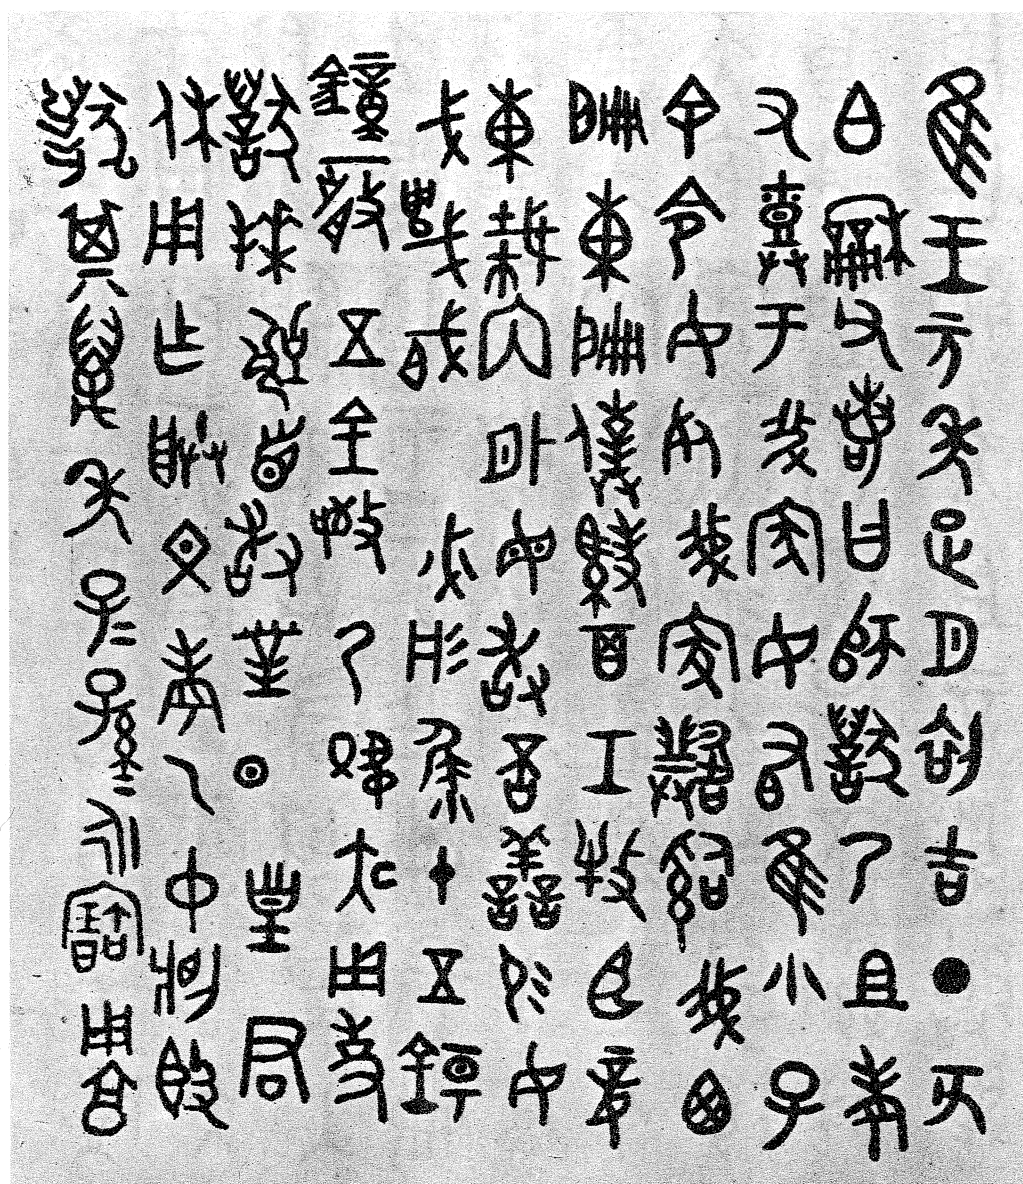 隹王元年正月初吉丁亥
白龢父若曰師𣪘乃且考
又于我家女有隹小子
余令女死我家𤔲我西
扁東扁僕馭百工牧臣妾
東裁內外毋敢否善易女
戈戈必彤沙十五
鐘一磬五金敬乃夙夜用事
𣪘拜首敢對揚皇君
休用乍朕文考乙中𣪘
𣪘其萬年子子孫永寶用享